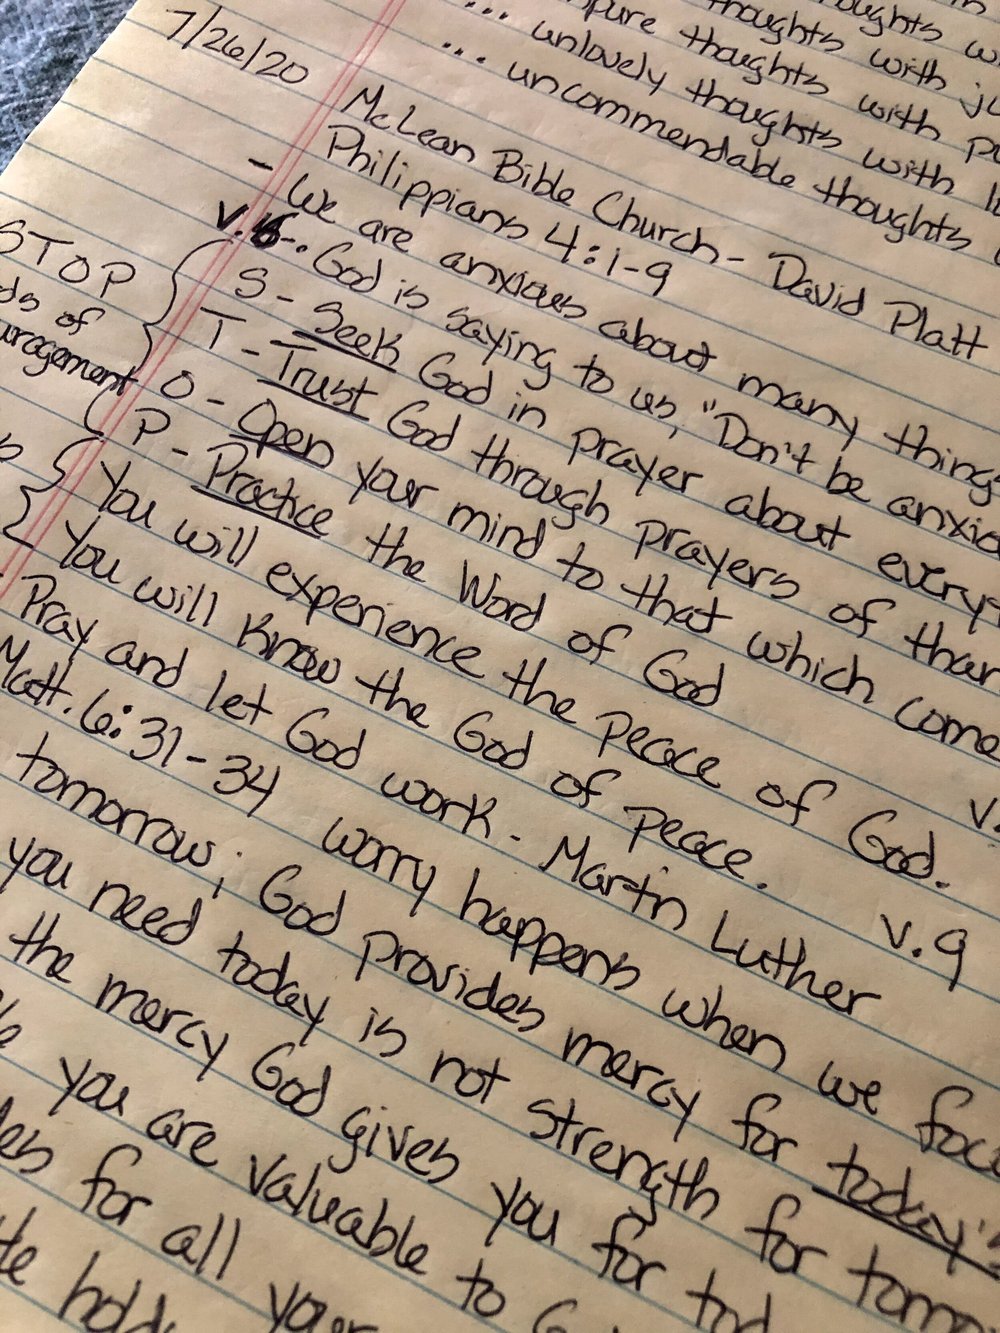 thoughts with
... pure thoughts with
... unlovely thoughts with
... uncommendable thoughts
7/26/20
McLean Bible Church - David Platt
Philippians 4:1-9
- We are anxious about many things
v.6-. God is saying to us, "Don't be
STOP
S - Seek God in prayer about
T - Trust God through prayers of
of
O - Open your mind to that which
P - Practice the Word of God
You will experience the peace of God.
You will know the God of peace. v.9
Pray and let God work - Martin Luther
Matt. 6:31-34 worry happens when we
tomorrow; God provides mercy for today's
you need today is not strength for
the mercy God gives you for
you are valuable to
for all your